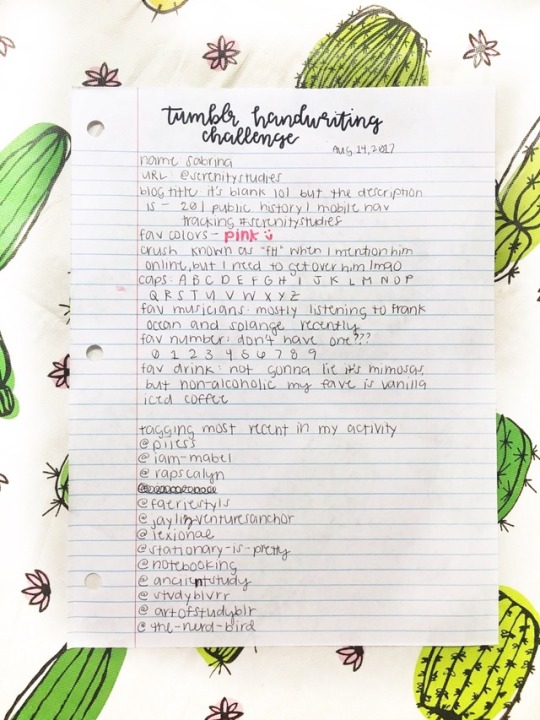 tumblr handwriting
challenge
Aug 14, 2017
name: sabrina
URL: @serenitystudies
blog title: it's blank lol but the description
is - 20 | public history | mobile nav
tracking #serenitystudies
fav colors - pink
crush: known as "fH" when I mention him
online, but I need to get over him lmao
caps: A B C D E F G H I J K L M N O P
Q R S T U V W X Y Z
fav musicians: mostly listening to frank
ocean and solange recently
fav number: don't have one???
0 1 2 3 4 5 6 7 8 9
fav drink: not gonna lie it's mimosas
but non-alcoholic my fave is vanilla
iced coffee
tagging most recent in my activity
@iam-mabel
@rapscalyn
@faeriestyls
@lexionae
@stationary-is-pretty
@notebooking
@ancientstudy
@studyblvrr
@artofstudyblr
@the-nerd-bird